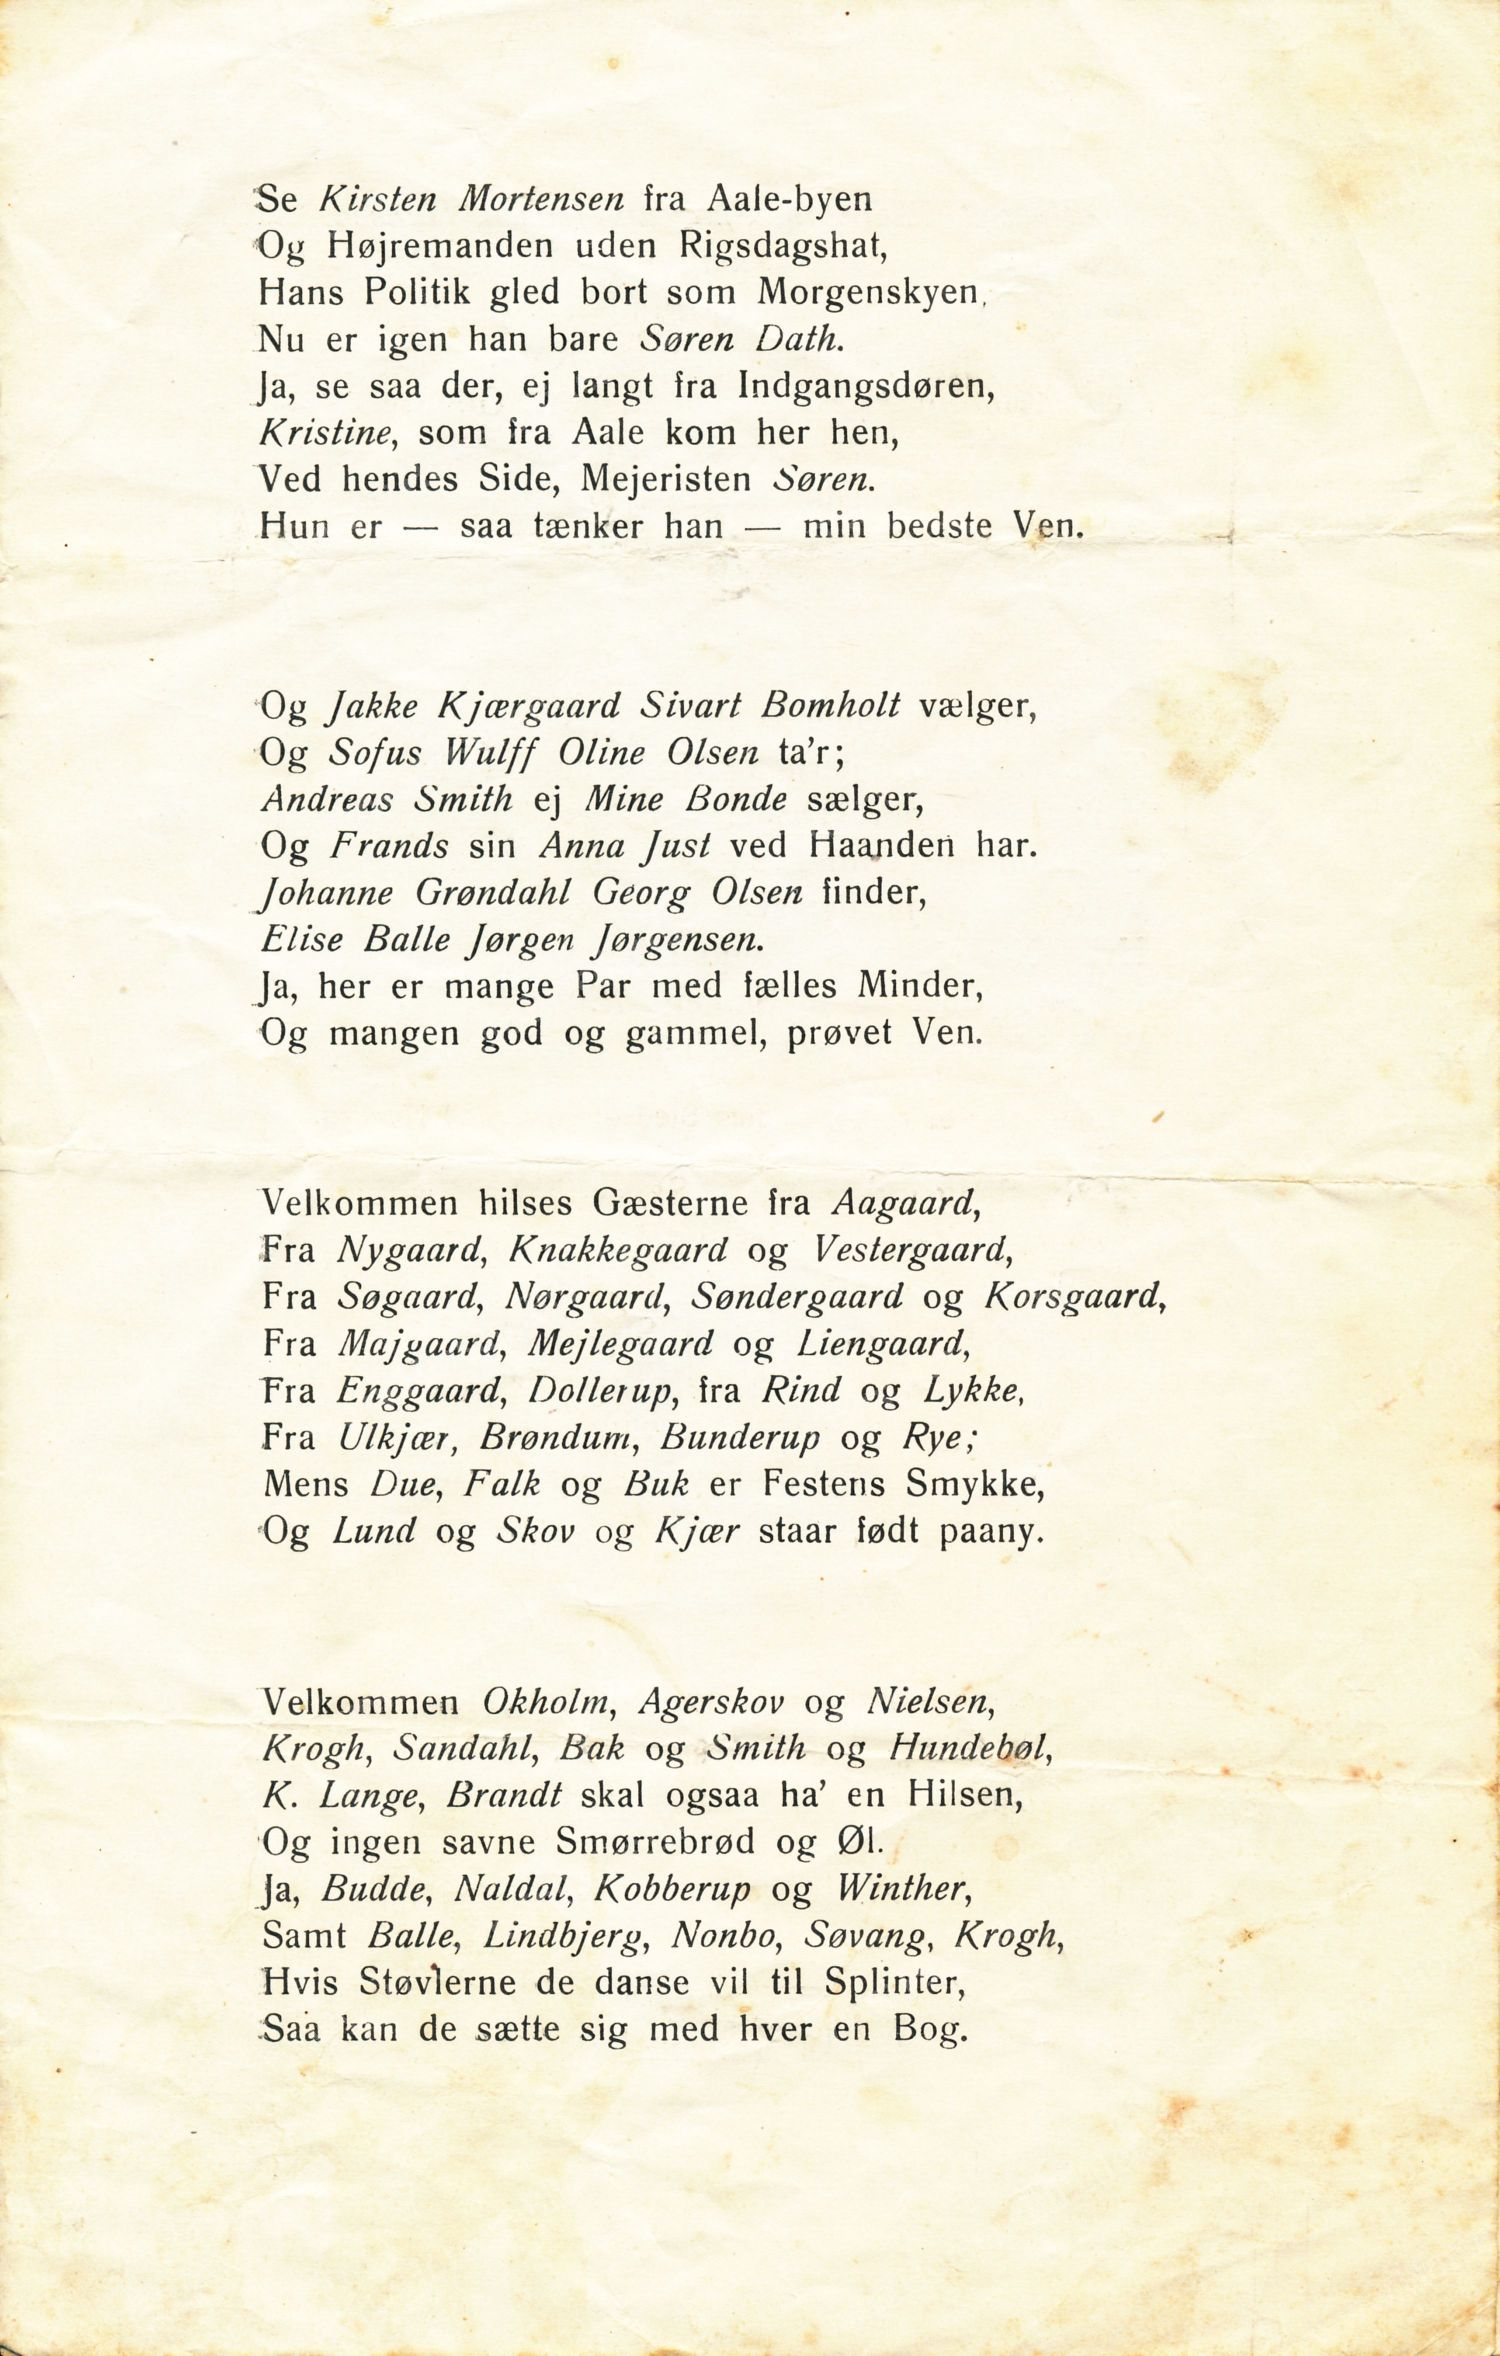 Se Kirsten Mortensen fra Aale-byen
Og Højremanden uden Rigsdagshat,
Hans Politik gled bort som Morgenskyen,
Nu er igen han bare Søren Dath.
Ja, se saa der, ej langt fra Indgangsdøren,
Kristine, som fra Aale kom her hen,
Ved hendes Side, Mejeristen Søren.
Hun er — saa tænker han — min bedste Ven.
Og Jakke Kjærgaard Sivart Bomholt vælger,
Og Sofus Wulff Oline Olsen ta'r;
Andreas Smith ej Mine Bonde sælger,
Og Frands sin Anna Just ved Haanden har.
Johanne Grøndahl Georg Olsen finder,
Elise Balle Jørgen Jørgensen.
Ja, her er mange Par med fælles Minder,
Og mangen god og gammel, prøvet Ven.
Velkommen hilses Gæsterne fra Aagaard,
Fra Nygaard, Knakkegaard og Vestergaard,
Fra Søgaard, Nørgaard, Søndergaard og Korsgaard,
Fra Majgaard, Mejlegaard og Liengaard,
Fra Enggaard, Dollerup, fra Rind og Lykke,
Fra Ulkjær, Brøndum, Bunderup og Rye;
Mens Due, Falk og Buk er Festens Smykke,
Og Lund og Skov og Kjær staar født paany.
Velkommen Okholm, Agerskov og Nielsen,
Krogh, Sandahl, Bak og Smith og Hundebøl,
K. Lange, Brandt skal ogsaa ha' en Hilsen,
Og ingen savne Smørrebrød og Øl.
Ja, Budde, Naldal, Kobberup og Winther,
Samt Balle, Lindbjerg, Nonbo, Søvang, Krogh,
Hvis Støvlerne de danse vil til Splinter,
Saa kan de sætte sig med hver en Bog.